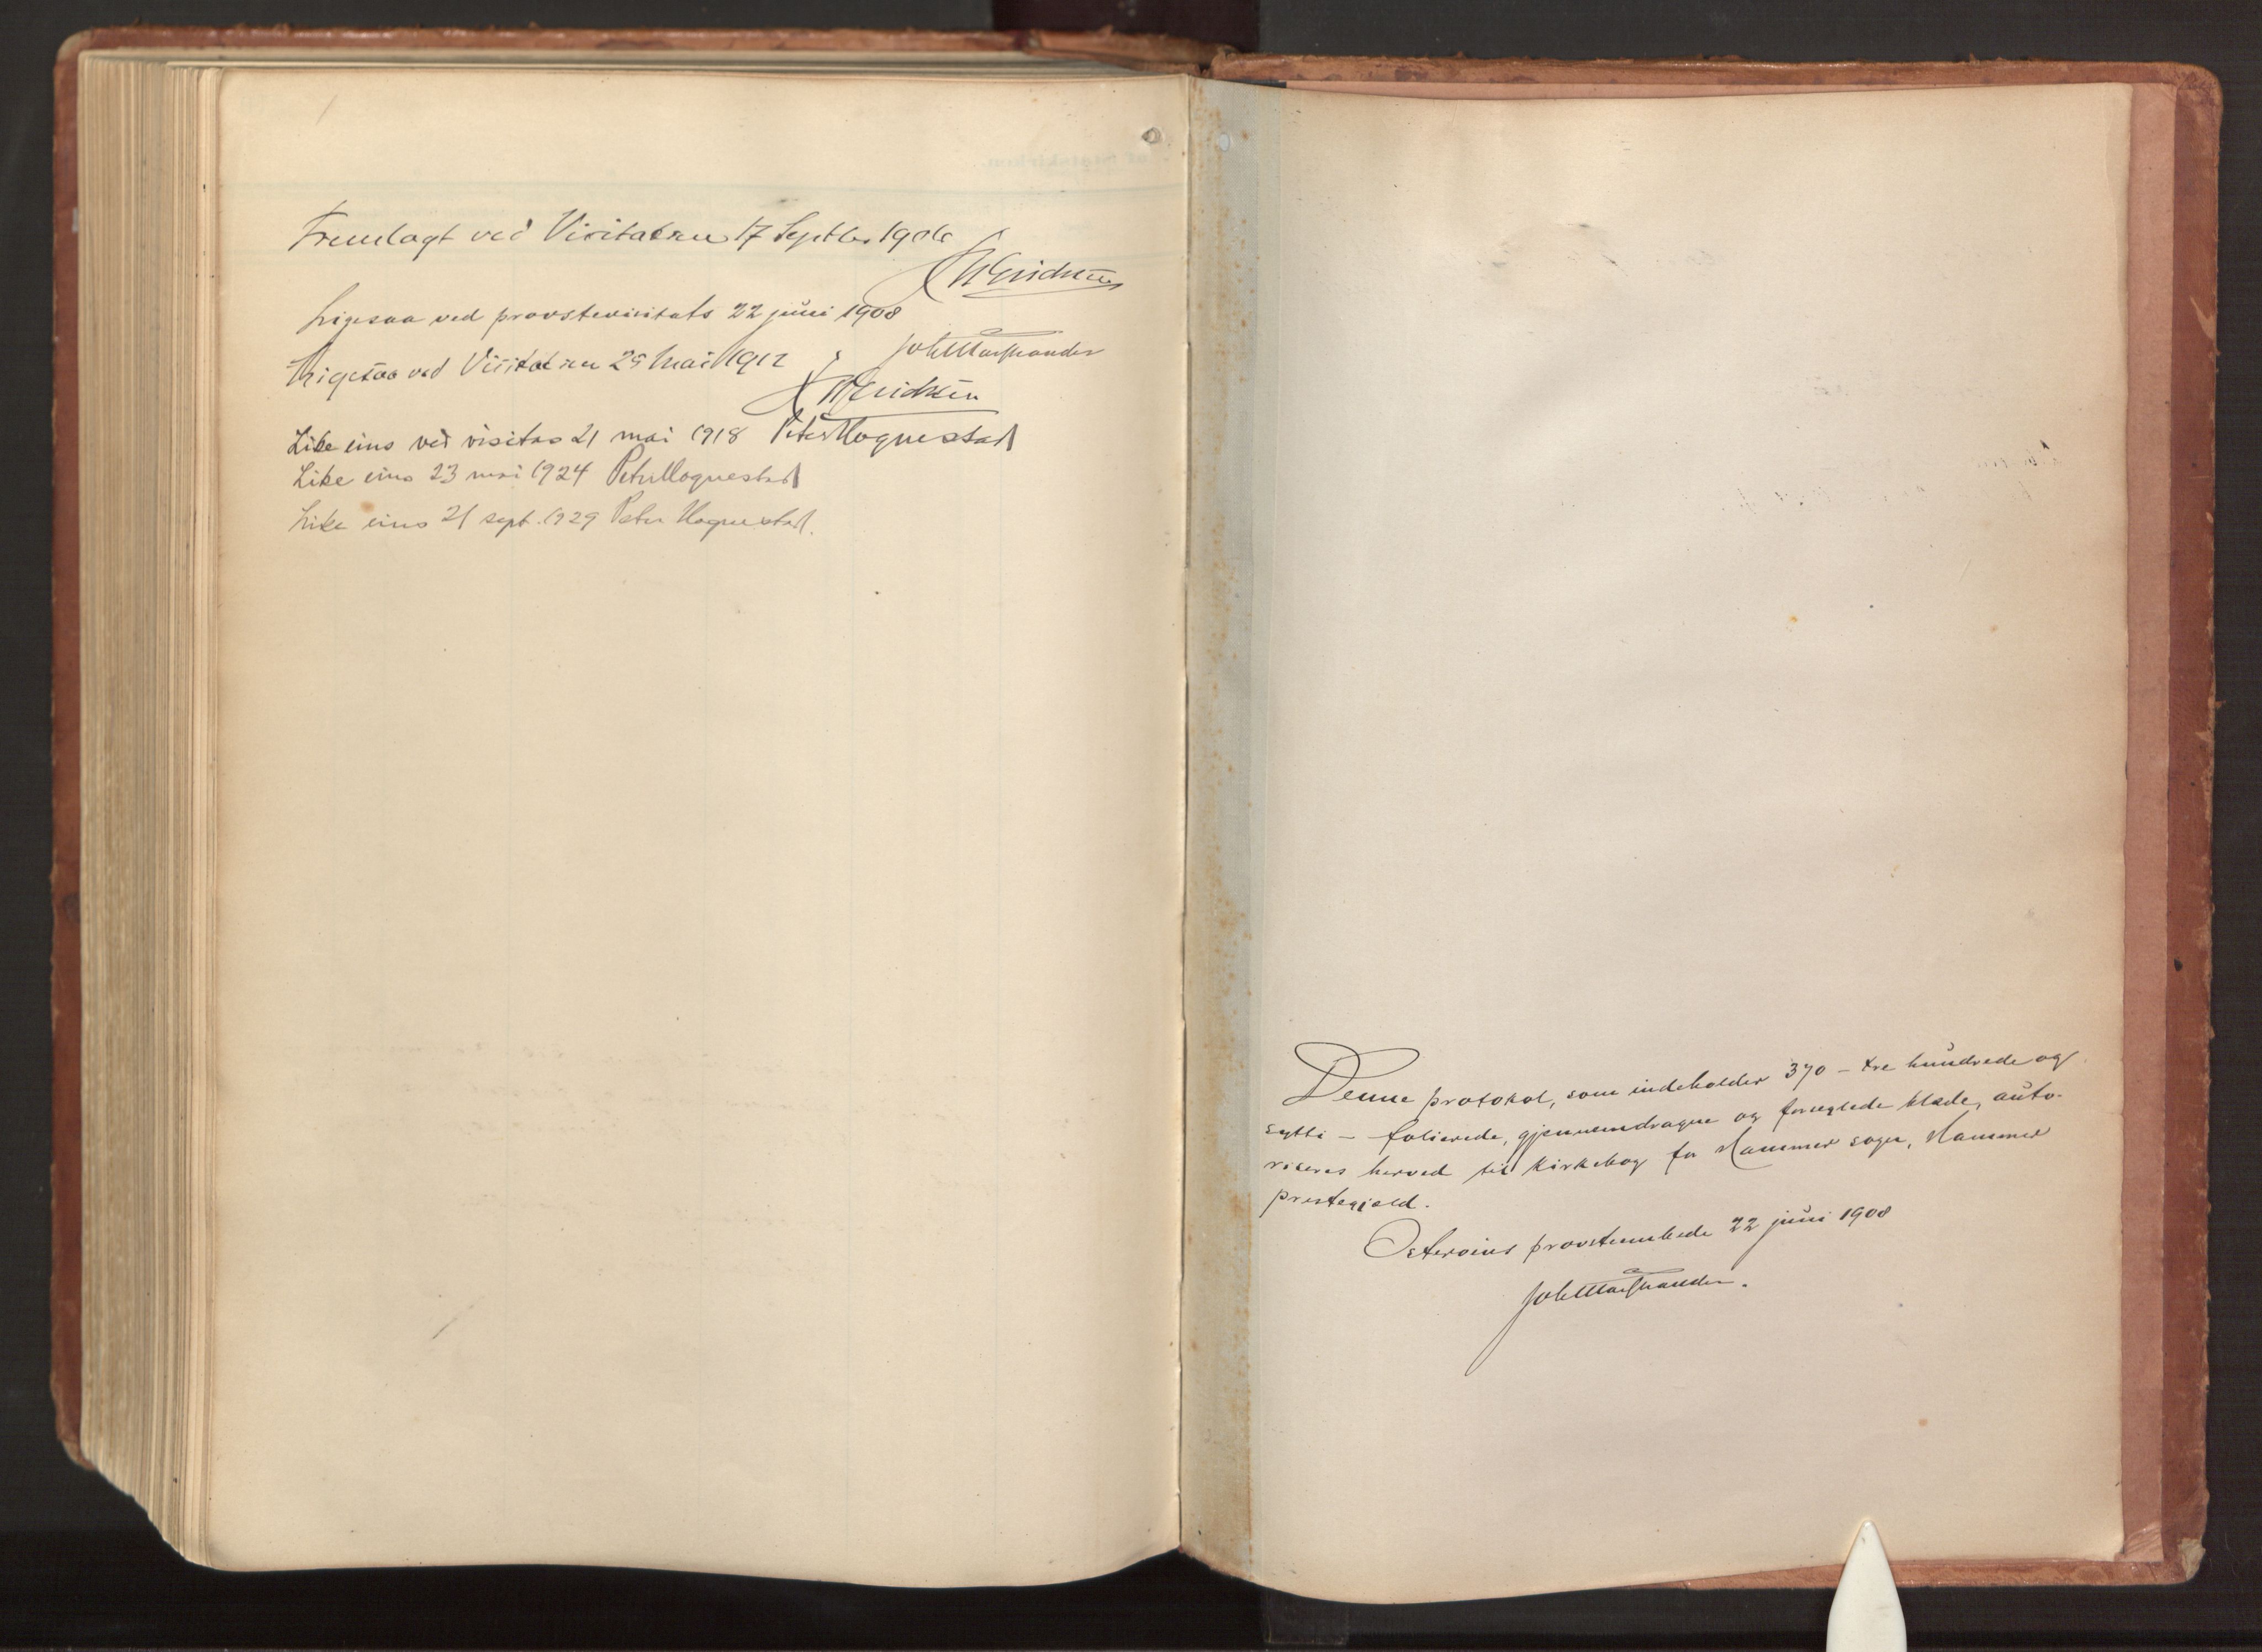 Fremlagt ved Visitatsen 17 Septbr 1906
J W Erichsen
Ligesaa ved provstevisitats 22 juni 1908
Joh Marstrander
Ligesaa ved Visitatsen 29 Mai 1912
J W Erichsen
Like eins ved visitas 21 mai 1918 Peter Hognestad
Like eins 23 mai 1924 Peter Hognestad
Like eins 21 sept. 1929 Peter Hognestad.
Denne protokol, som indeholder 370 – tre hundrede og
sytti – folierede, gjennemdragne og forseglede blade, auto-
riseres herved til kirkebog for Hammer sogn, Hammer
prestegjeld.
Osterøens provsteembede 22 juni 1908
Joh Marstrander.